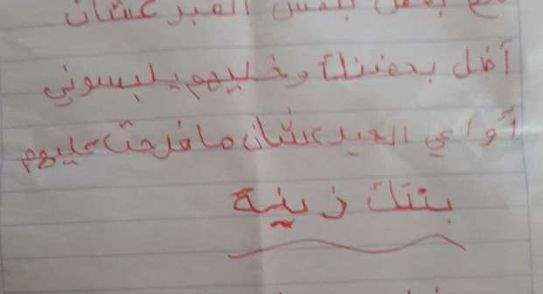 بنفس القبر عشان
أضل بحضنك وخليهم يلبسوني
أواعي العيد عشان ما فرحت عليهم
بنتك زينة